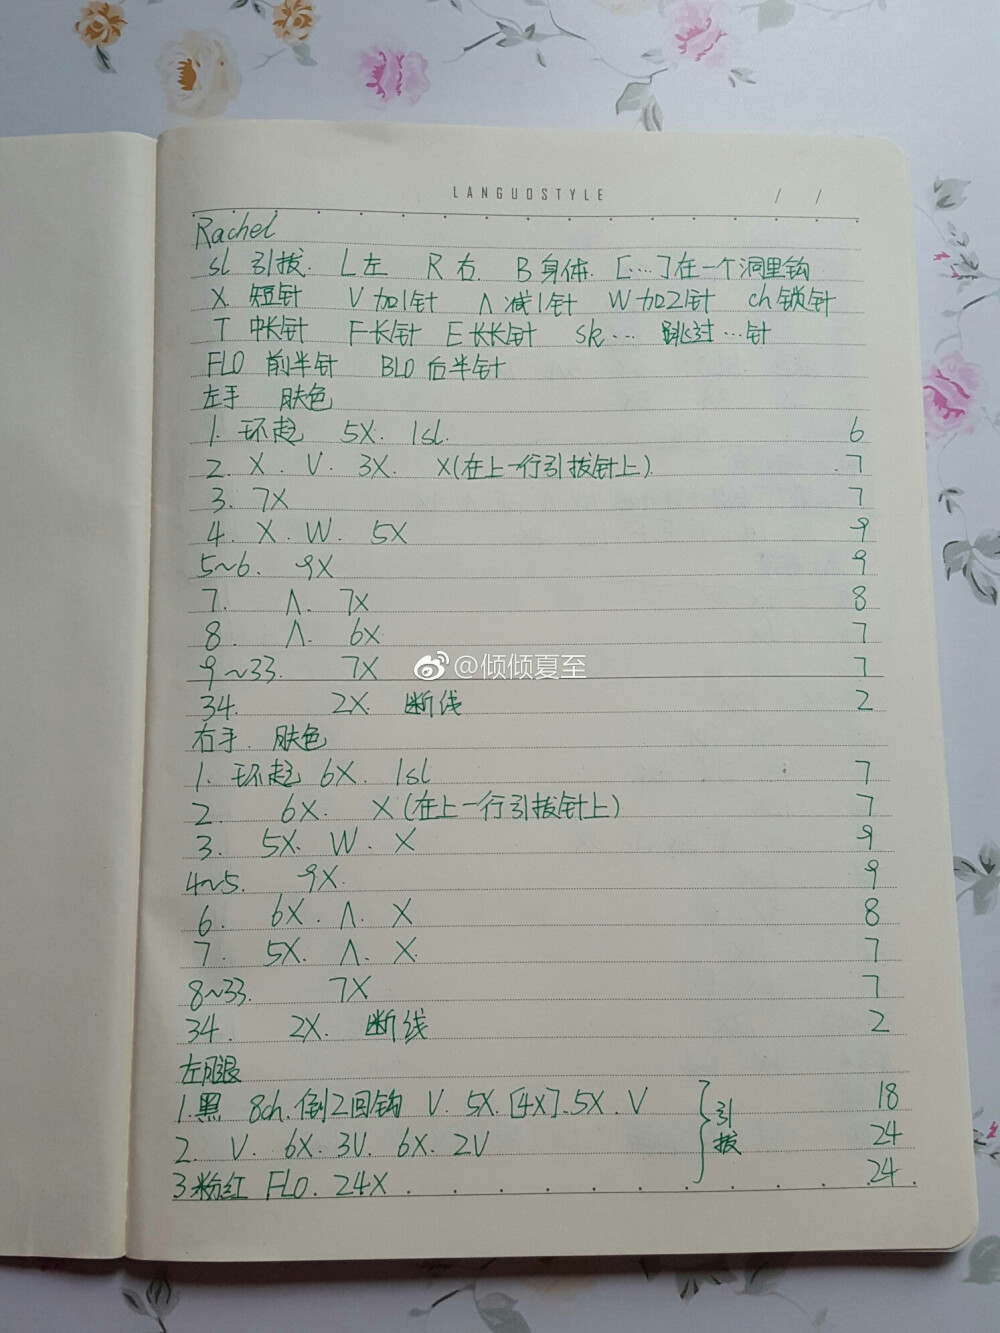 LANGUOSTYLE / /
Rachel
sl 引拔. L左 R右. B身体. [...]在一个洞里钩
X. 短针 V加1针 Λ减1针 W加2针 ch锁针
T 中长针 F长针 E长长针 sk... 跳过...针
FLO 前半针 BLO后半针
左手 肤色
1. 环起 5X. 1sl. 6
2. X. V. 3X. X(在上一行引拔针上) 7
3. 7X 7
4. X. W. 5X 9
5~6. 9X 9
7. Λ. 7X 8
8. Λ. 6X 7
9~33. 7X 7
@倾倾夏至
34. 2X. 断线 2
右手. 肤色
1. 环起 6X. 1sl 7
2. 6X. X(在上一行引拔针上) 7
3. 5X. W. X 9
4~5. 9X. 9
6. 6X. Λ. X 8
7. 5X. Λ. X. 7
8~33. 7X 7
34. 2X. 断线 2
左腿
1.黑 8ch.倒2回钩 V. 5X.[4X].5X.V 18
2. V. 6X. 3V. 6X. 2V 引拔 24
3粉红 FLO. 24X 24